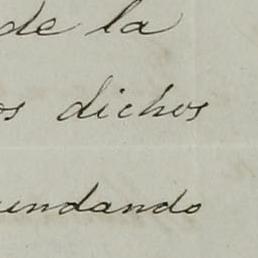 de la
os dichos
undando